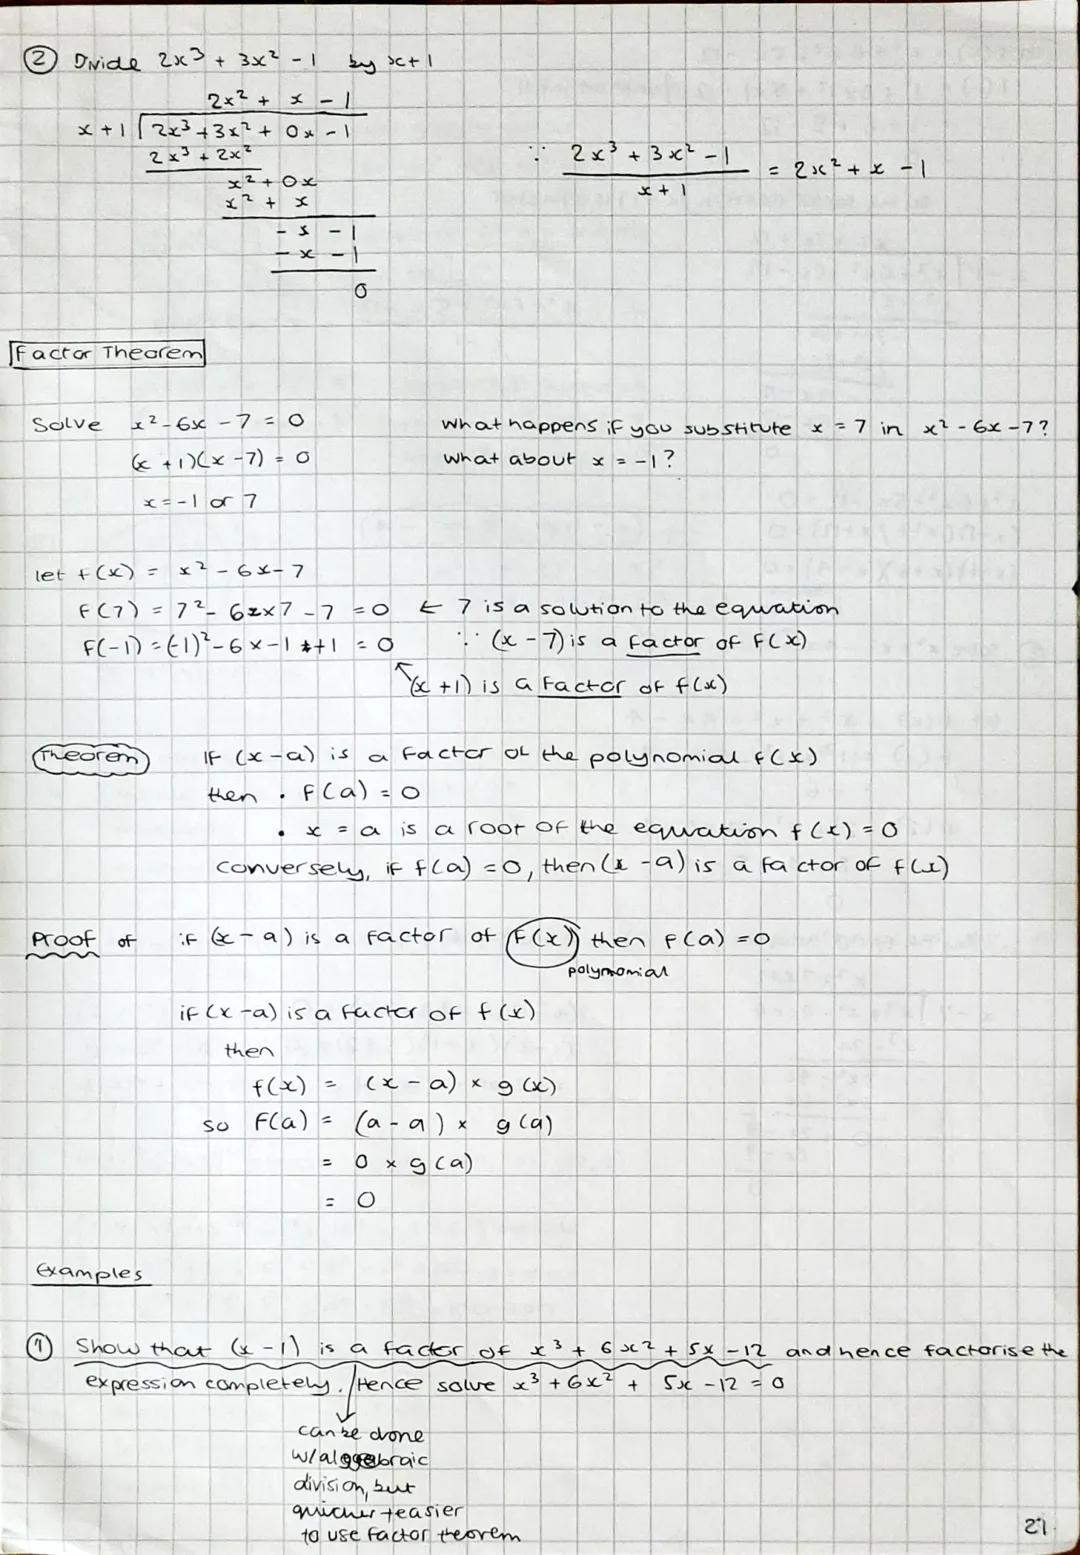 ② Divide 2x³ + 3x² - 1 by x+1
2x² + x - 1
x + 1 | 2x³ + 3x² + 0x - 1
2x³ + 2x²
x² + 0x
x² + x
- x - 1
- x - 1
0
∵ (2x³ + 3x² - 1)/(x + 1) = 2x² + x - 1
Factor Theorem
Solve x² - 6x - 7 = 0
(x + 1)(x - 7) = 0
x = -1 or 7
What happens if you substitute x = 7 in x² - 6x - 7?
What about x = -1?
let f(x) = x² - 6x - 7
f(7) = 7² - 6 x 7 - 7 = 0 ← 7 is a solution to the equation
∵ (x - 7) is a factor of f(x)
f(-1) = (-1)² - 6 x -1 + 1 = 0
(x + 1) is a factor of f(x)
Theorem If (x - a) is a factor of the polynomial f(x)
then • f(a) = 0
• x = a is a root of the equation f(x) = 0
conversely, if f(a) = 0, then (x - a) is a factor of f(x)
Proof of if (x - a) is a factor of f(x) then f(a) = 0
polynomial
if (x - a) is a factor of f(x)
then
f(x) = (x - a) × g(x)
so f(a) = (a - a) × g(a)
= 0 × g(a)
= 0
Examples
① Show that (x - 1) is a factor of x³ + 6x² + 5x - 12 and hence factorise the
expression completely. Hence solve x³ + 6x² + 5x - 12 = 0
can be done
w/ algebraic
division, but
quicker + easier
to use factor theorem
27.